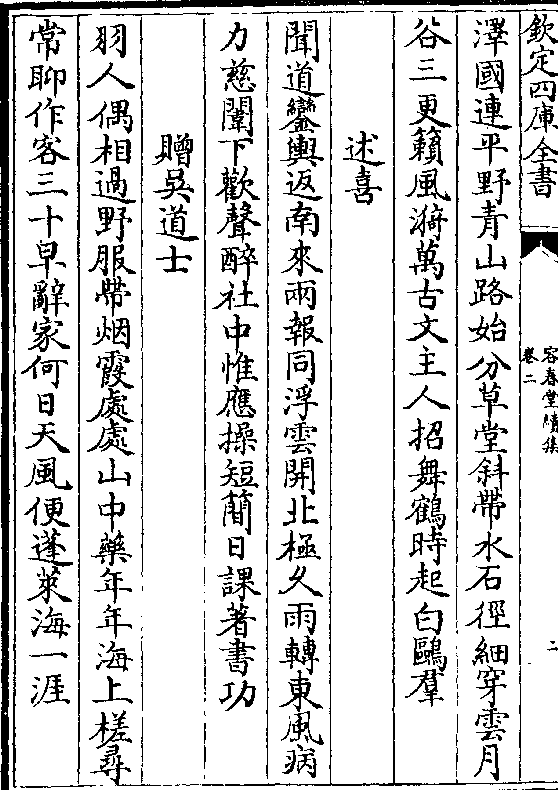 欽定四庫全書
容春堂續集
卷二
二
澤國連平野青山路始分草堂斜帶水石徑細穿雲月
谷三更籟風漪萬古文主人招舞鶴時起白鷗羣
述喜
聞道鑾輿返南來兩報同浮雲開北極久雨轉東風病
力慈闈下歡聲醉社中惟應操短簡日課著書功
贈吳道士
羽人偶相過野服帶烟霞處處山中藥年年海上槎尋
常聊作客三十早辭家何日天風便蓬萊海一涯